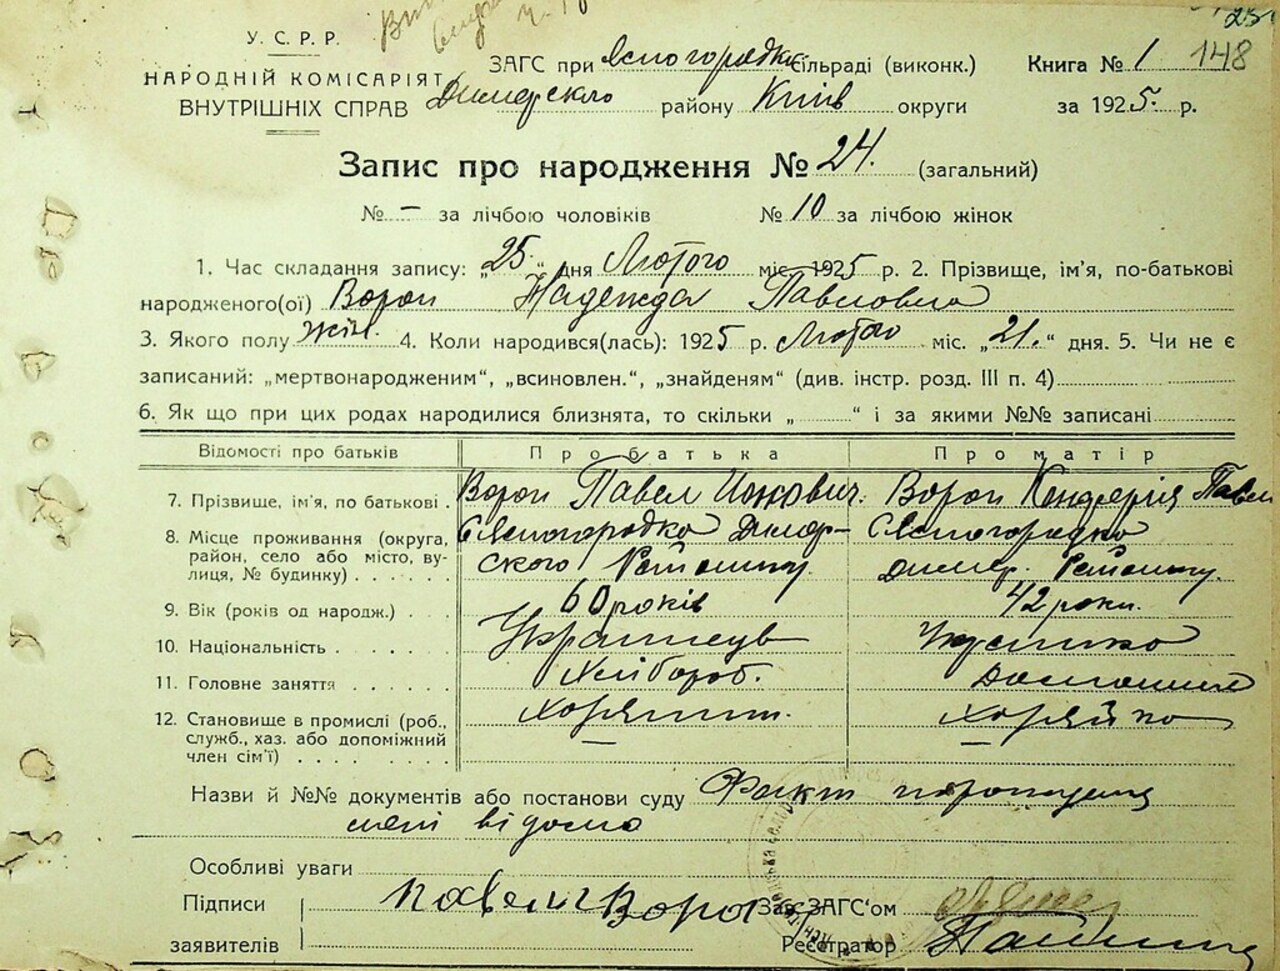 148
У. С. Р. Р.
НАРОДНІЙ КОМІСАРІЯТ
ВНУТРІШНІХ СПРАВ
ЗАГС при Ясногородка сільраді (виконк.) Книга № 1
Димерского району Київ округи за 1925. р.
Запис про народження № 24. (загальний)
№ – за лічбою чоловіків № 10 за лічбою жінок
1. Час складання запису: „25.“ дня Лютого міс. 1925 р. 2. Прізвище, ім’я, по-батькові
народженого(ої) Ворон Надежда Павловна
3. Якого полу жін. 4. Коли народився(лась): 1925 р. Лютого міс. „21.“ дня. 5. Чи не є
записаний: „мертвонародженим“, „всиновлен.“, „знайденям“ (див. інстр. розд. III п. 4)
6. Як що при цих родах народилися близнята, то скільки „ “ і за якими №№ записані
Відомості про батьків Про батька Про матір
7. Прізвище, ім’я, по батькові . Ворон Павел Ионович. Ворон Павл
8. Місце проживання (округа, С Ясногородка Димер– С Ясногородка
район, село або місто, ву-
лиця, № будинку) . . . . . . ского Димер.
9. Вік (років од народж.) . . 60 років 42 роки.
10. Національність . . . . . Українець
11. Головне заняття . . . . . . Хлібороб. Домашнє
12. Становище в промислі (роб., Хозяїн. Хозяйка
служб., хаз. або допоміжний – –
член сім’ї) . . . . . . . .
Назви й №№ документів або постанови суду Факт
мені відомо
Особливі уваги
Підписи Павел Ворон Зав. ЗАГС‘ом
заявителів Реєстратор